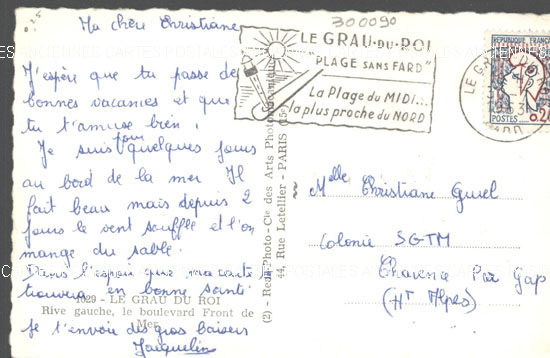 0.25
300090
Ma chère Christiane
J'espère que tu passe de
bonnes vacances et que
tu t'amuse bien.
Je suis pour quelques jours
au bord de la mer Il
fait beau mais depuis 2
jours le vent souffle et l'on
mange du sable.
Dans l'espoir que ma carte
trouvera en bonne santé
Je t'envoie des gros baisers
Jacqueline
1029 - LE GRAU DU ROI
Rive gauche, le boulevard Front de
Mer
(2) - Redi-Photo - Cie des Arts Photomécaniques
44, Rue Letellier - PARIS-15e
LE GRAU-DU-ROI
"PLAGE SANS FARD"
La Plage du MIDI...
la plus proche du NORD
REPUBLIQUE FRANÇAISE
POSTES
LE GRAU DU
1963
Melle Christiane
Colonie SGTM
Charence Par Gap
(Hts Alpes)